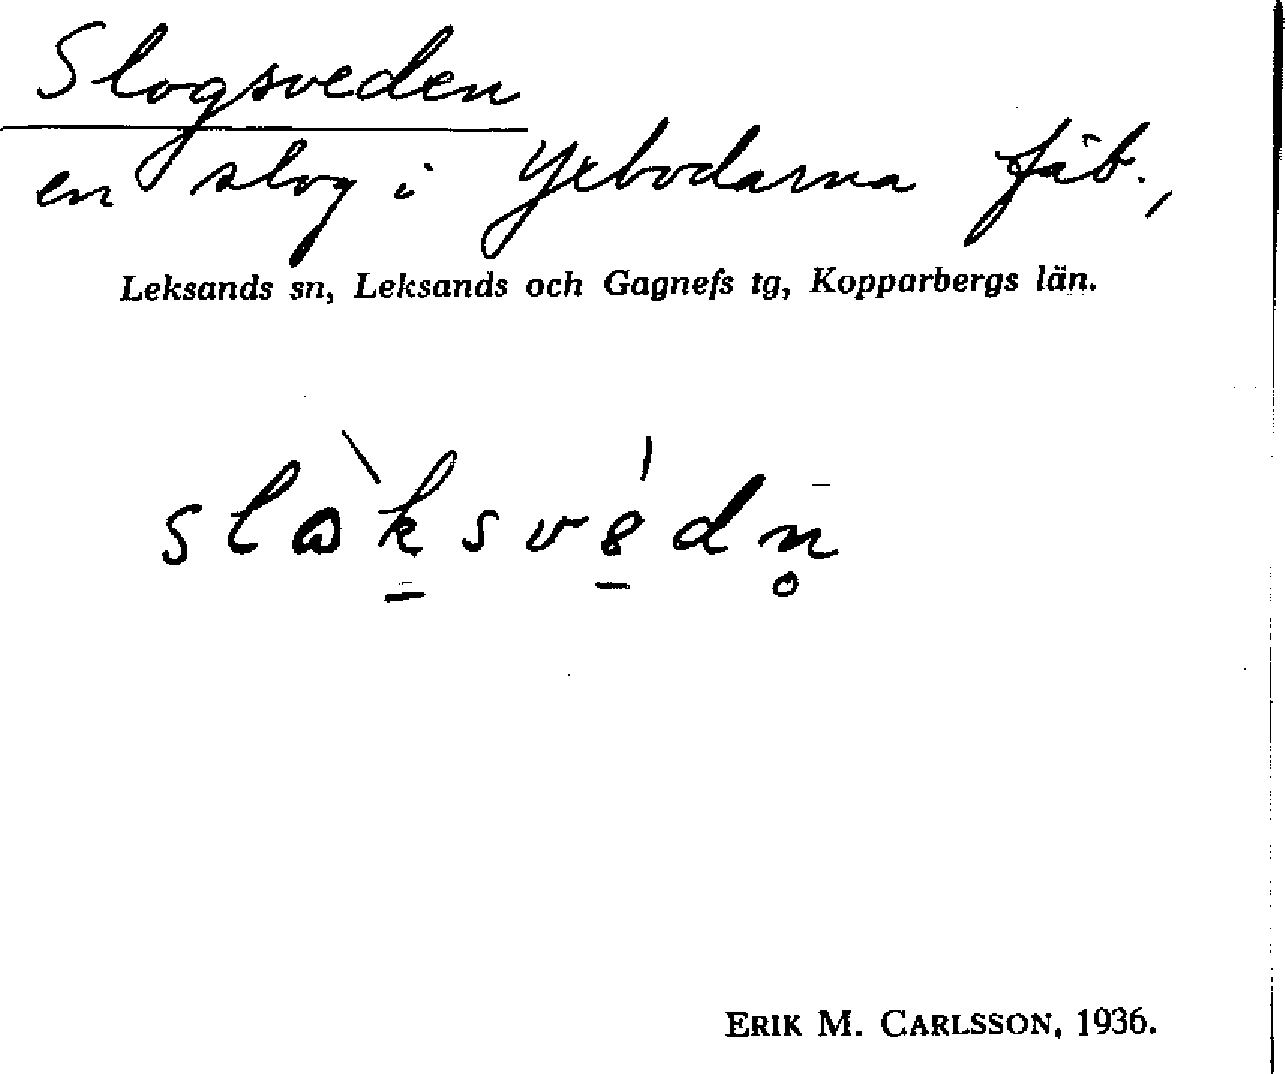 Slogsveden
en slog i Yxbodarna fäb.,
Leksands sn, Leksands och Gagnefs tg, Kopparbergs län.
ERIK M. CARLSSON, 1936.